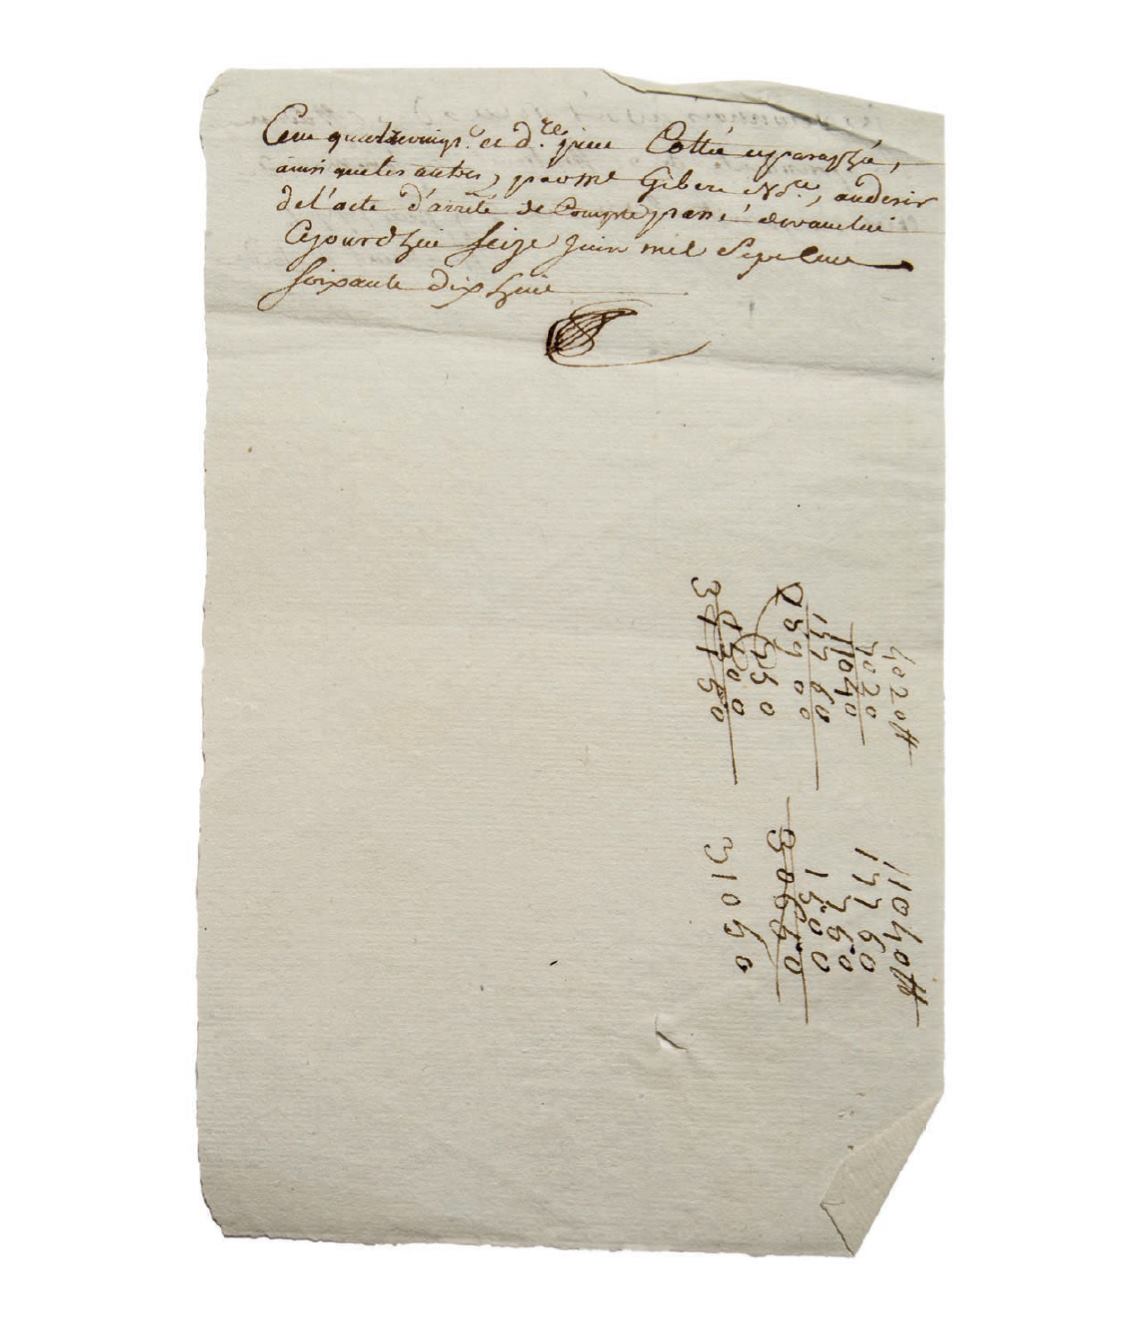 Cent quatrevingt.e et d.re piece Cottée et paraphée,
ainsi que les autres, par me Gibert No.re, au desir
de l'acte d'arrêté de Compte passé devant lui
Cejourd'hui Seize Juin mil Sept Cent
Soixante dix huit
4020#
7020
11040
17760
28900
750
1500
31150
11040#
17760
750
1500
31050